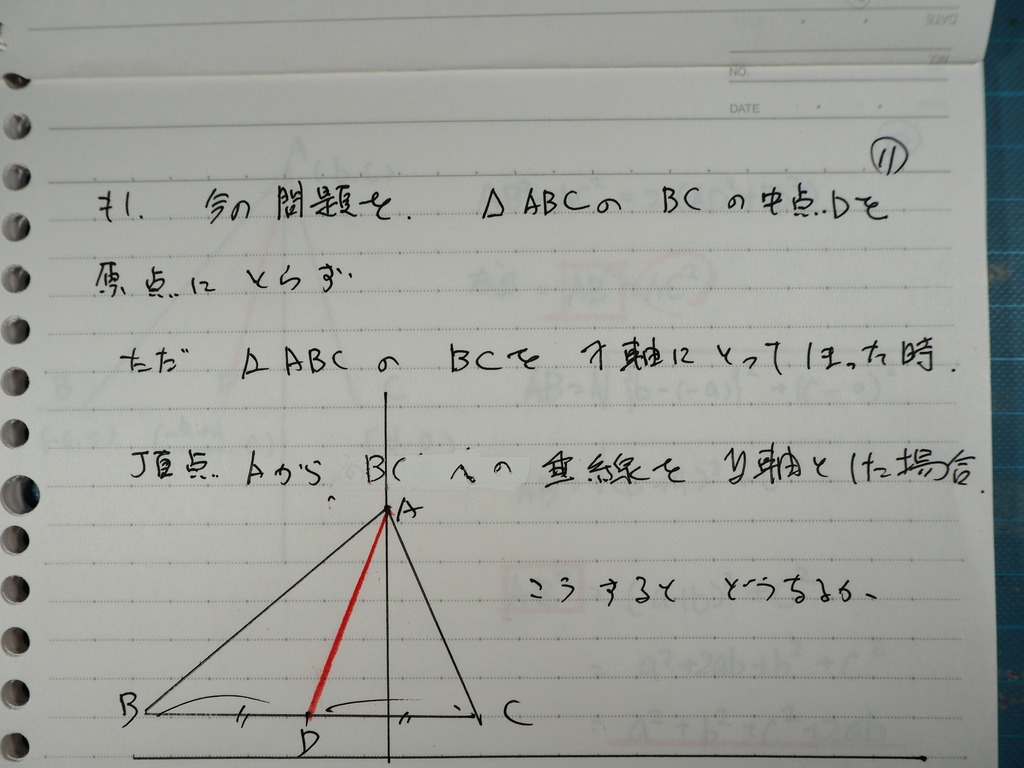 NO.
DATE
⑪
もし 今の問題を. △ABCの BCの中点Dを
原点に とらず
ただ △ABCの BCを x軸にとってしまった時.
頂点 Aから BCへの 垂線を y軸とした場合.
A
こうすると どうなるか、
B
C
D